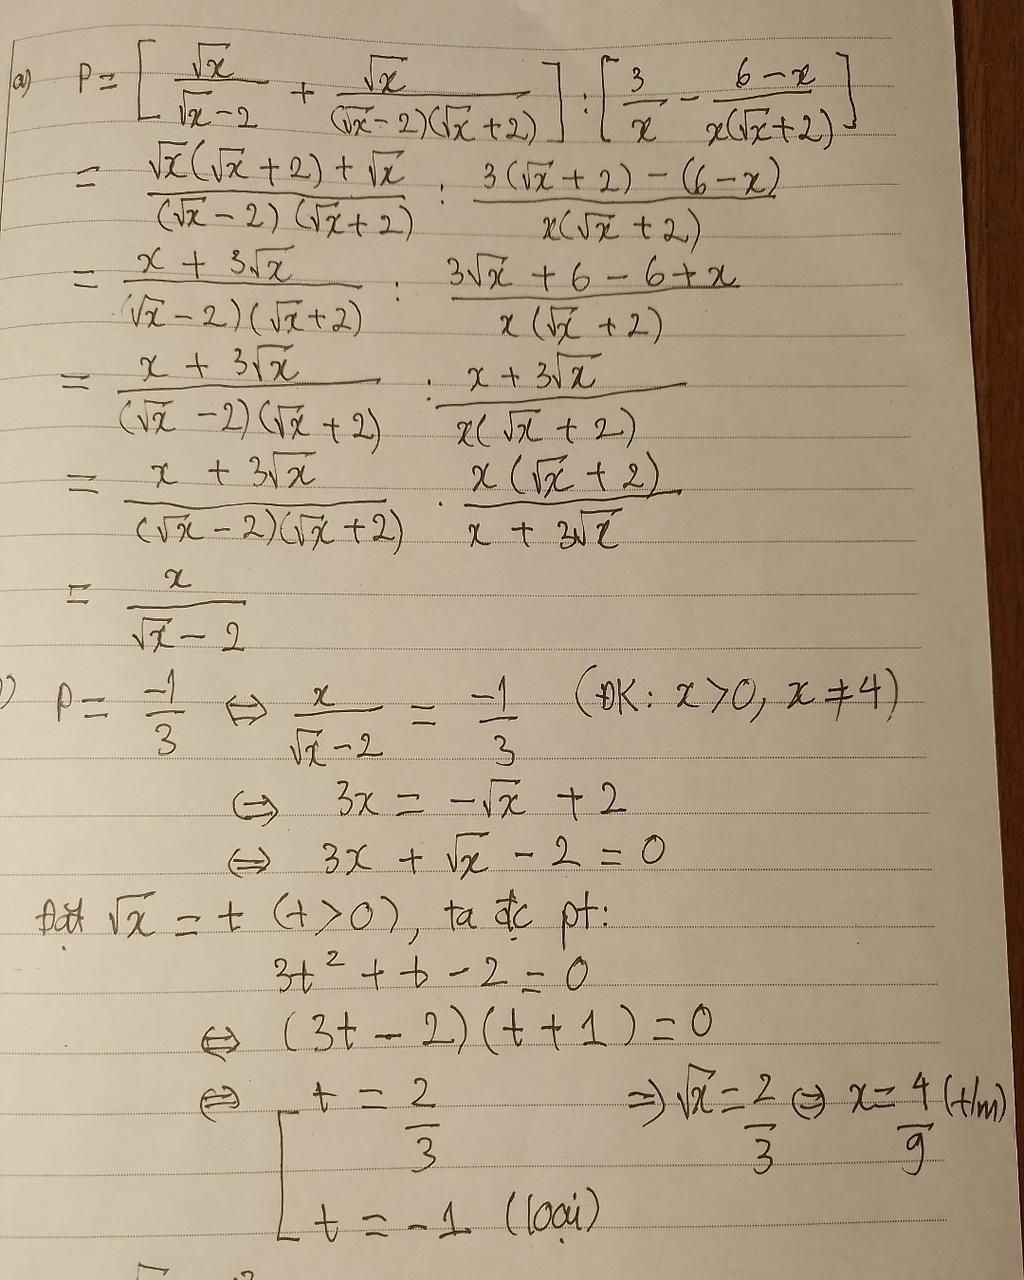 a) P = [ √x/(√x - 2) + √x/((√x - 2)(√x + 2)) ] : [ 3/x - (6 - x)/(x(√x + 2)) ]
= (√x(√x + 2) + √x)/((√x - 2)(√x + 2)) : (3(√x + 2) - (6 - x))/(x(√x + 2))
= (x + 3√x)/((√x - 2)(√x + 2)) : (3√x + 6 - 6 + x)/(x(√x + 2))
= (x + 3√x)/((√x - 2)(√x + 2)) : (x + 3√x)/(x(√x + 2))
= (x + 3√x)/((√x - 2)(√x + 2)) . (x(√x + 2))/(x + 3√x)
= x/(√x - 2)
) P = -1/3 ⇔ x/(√x - 2) = -1/3 (ĐK: x > 0, x ≠ 4)
⇔ 3x = -√x + 2
⇔ 3x + √x - 2 = 0
Đặt √x = t (t > 0), ta đc pt:
3t² + t - 2 = 0
⇔ (3t - 2)(t + 1) = 0
⇔ [ t = 2/3 ⇒ √x = 2/3 ⇔ x = 4/9 (t/m)
t = -1 (loại)